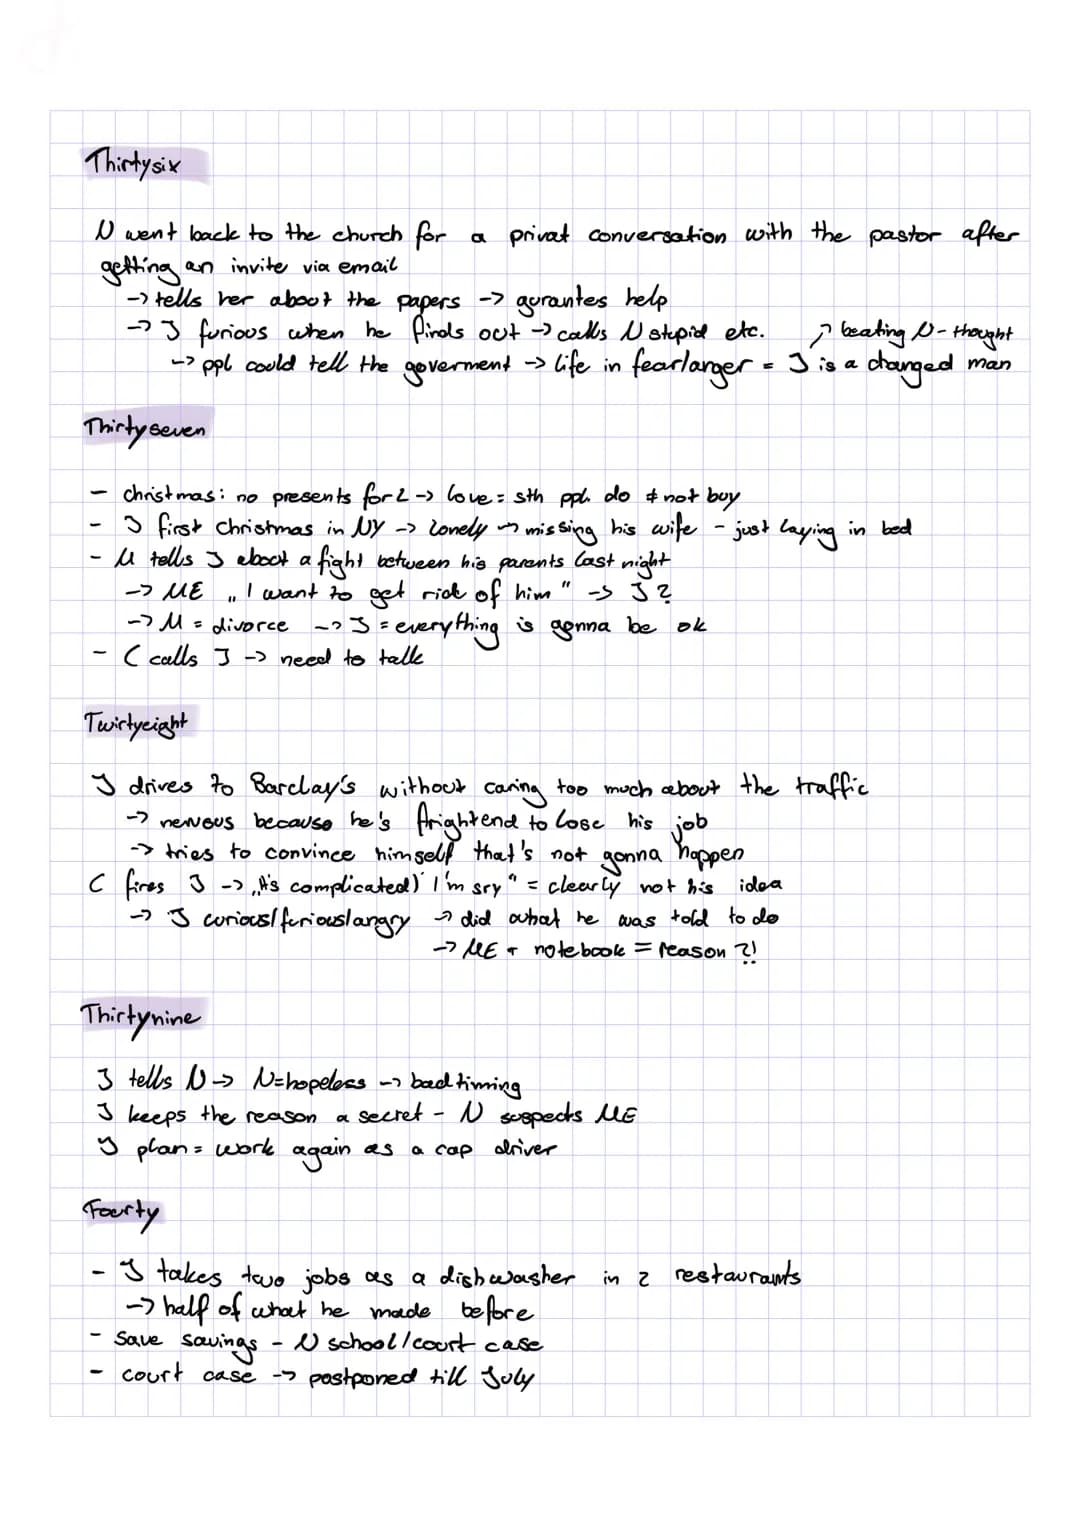 Thirtysix
N went back to the church for a privat conversation with the pastor after
getting an invite via email
-> tells her about the papers -> gurantes help
-> J furious when he finds out -> calls N stupid etc. ↗ beating N - thought
-> ppl could tell the goverment -> life in fear/anger = J is a changed man
Thirtyseven
- christmas: no presents for L -> love = sth ppl. do ≠ not buy
- J first Christmas in NY -> lonely ~> missing his wife - just laying in bed
- M tells J about a fight between his parents last night
-> ME „I want to get rid of him" -> J?
-> M = divorce -> J = everything is gonna be ok
- C calls J -> need to talk
Twirtyeight
J drives to Barclay's without caring too much about the traffic
-> nervous because he's frightend to lose his job
-> tries to convince himself that's not gonna happen
C fires J -> „It's complicated) I'm sry" = clearly not his idea
-> J curious/furious/angry -> did what he was told to do
-> ME + notebook = reason ?!
Thirtynine
J tells N -> N=hopeless -> bad timing
J keeps the reason a secret - N suspects ME
J plan = work again as a cap driver
Fourty
- J takes two jobs as a dishwasher in 2 restaurants
-> half of what he made before
- save savings - N school/court case
- court case -> postponed till July